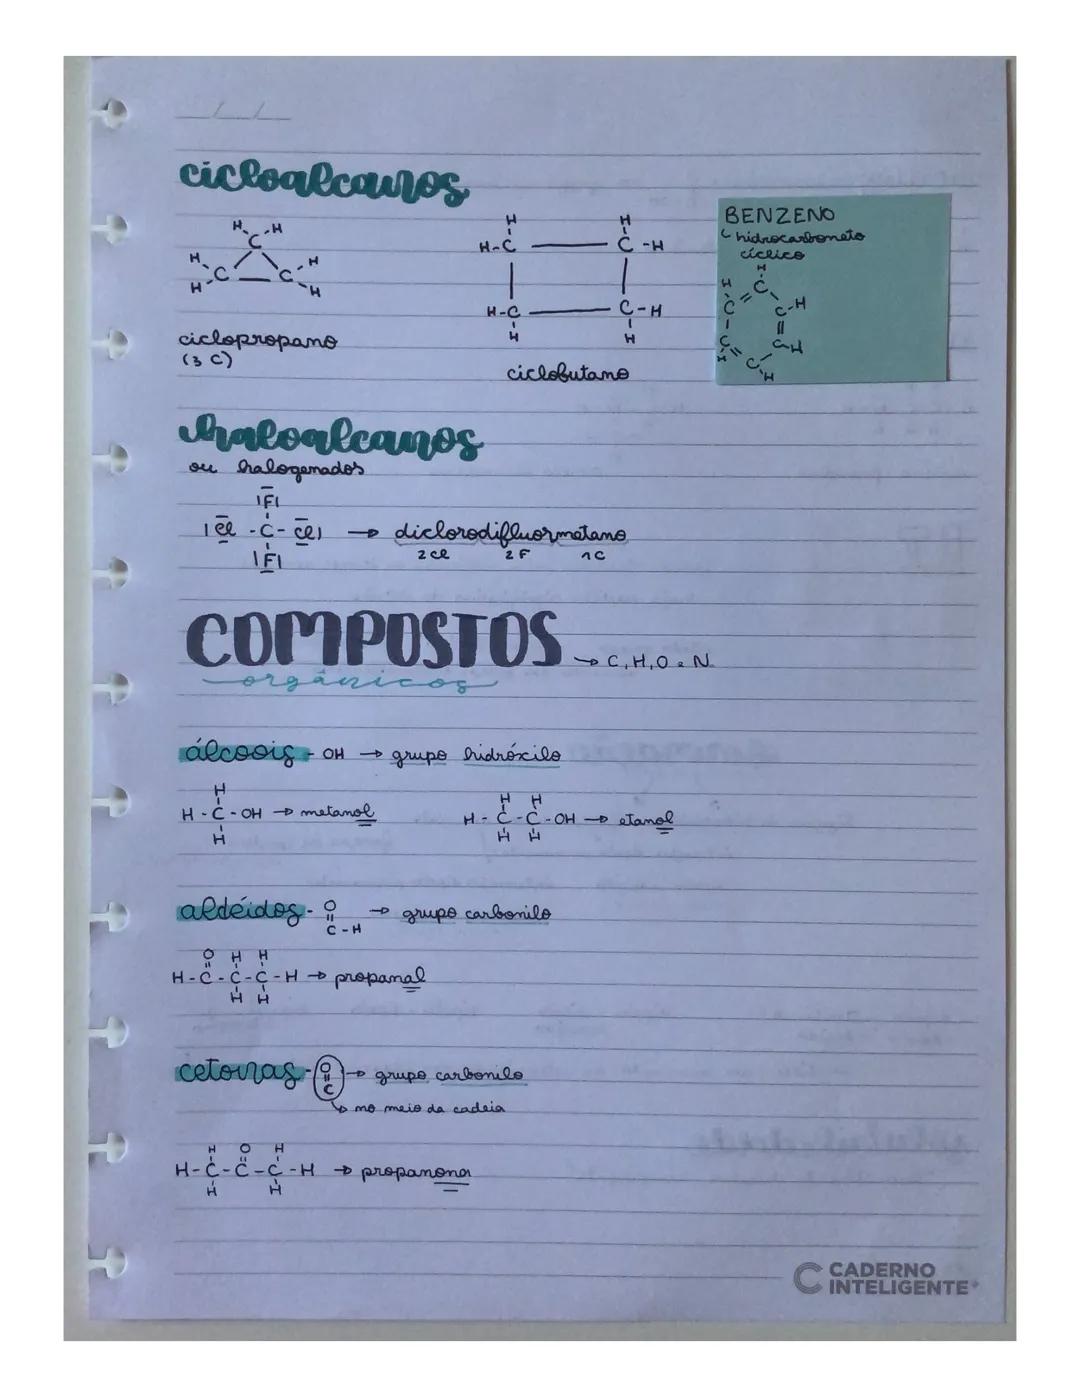 cicloalcanos
H H
C
H H
C C
H H
ciclopropano
(3 C)
H H
H-C C-H
H-C C-H
H H
ciclobutano
BENZENO
hidrocarboneto
cíclico
H
H C
C C-H
C C-H
H C
H
haloalcanos
ou halogenados
|F|
|Cl - C - Cl| → diclorodifluormetano
|F| 2 Cl 2 F 1 C
COMPOSTOS → C, H, O e N
orgânicos
álcoois - OH → grupo hidróxilo
H
H - C - OH → metanol
H
H H
H - C - C - OH → etanol
H H
aldeídos - O → grupo carbonilo
C - H
O H H
H - C - C - C - H → propanal
H H
cetonas - O → grupo carbonilo
C
↳ no meio da cadeia
H O H
H - C - C - C - H → propanona
H H
CADERNO
INTELIGENTE